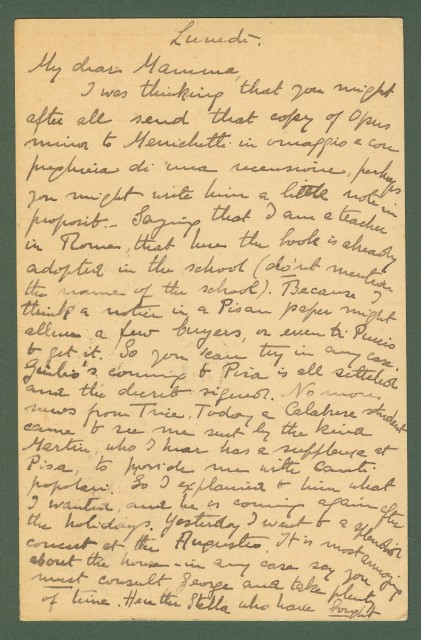 Lunedì.
My dear Mamma,
I was thinking that you might
after all send that copy of Opus
minor to Menichetti in omaggio e con
preghiera di una recensione, perhaps
you might write him a little note in
proposit. Saying that I am a teacher
in Rome, that here the book is already
adopted in the school (do'nt mention
the name of the school). Because I
think a notice in a Pisan paper might
allure a few buyers, or even
to get it. So you can try in any case.
Giulio's coming to Pisa is all settled
and the decreto signed. No more
news from Trice. Today a Calabrese student
came to see me sent by the kind
Martin, who I hear has a supplenza at
Pisa, to provide me with canti
popolari. So I explained to him what
I wanted, and he is coming again after
the holidays. Yesterday I went to a splendid
concert at the Augusteo. It is most annoying
about the house - in any case say you
must consult George and take plenty
of time. Here the Stella who have bought